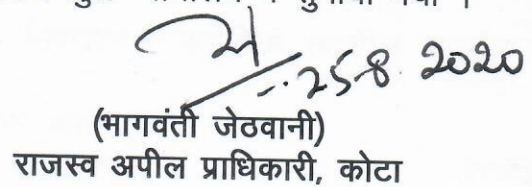 25-8-2020
(भागवंती जेठवानी)
राजस्व अपील प्राधिकारी, कोटा